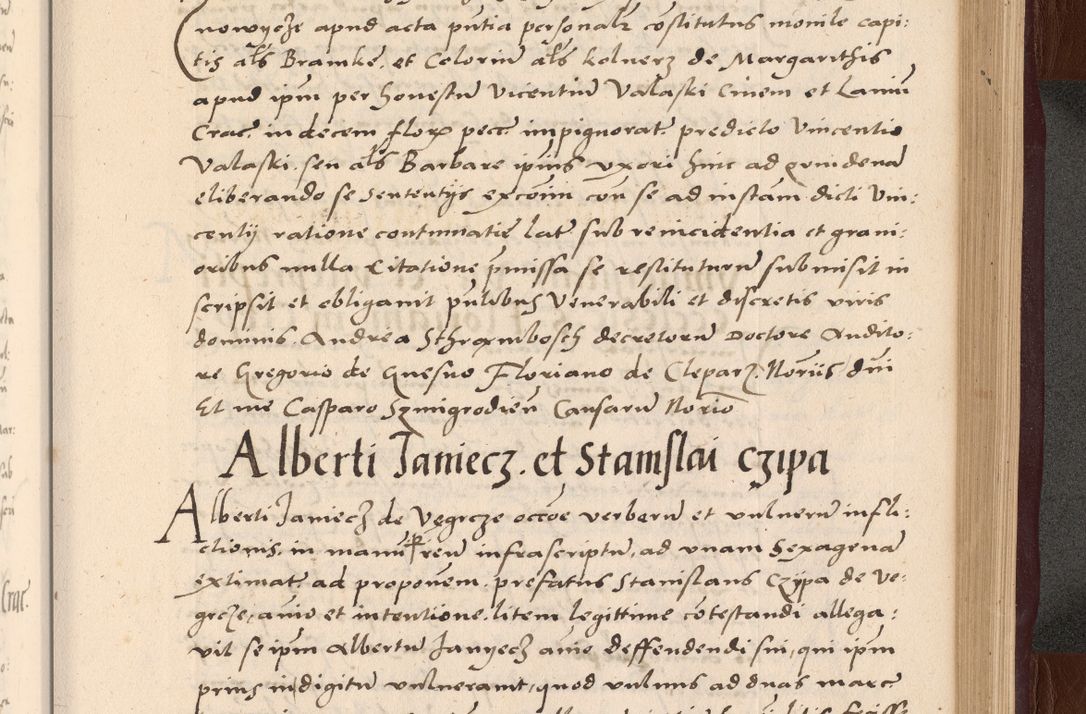 nowycze apud acta pñtia personalr cõstitutus monile capi:
tis als Bramkẽ, et Coloriũ als kolnerz de Margarithis
apud ipm per honestũ Vicentiũ Valaski Ciuem et Laniũ
Crac. in decem flor pecc impignorat. predicto Vincentio
Valaski seu als Barbare ipius vxori hinc ad quindenã
eliberando se Sententys excõim con se ad instam dicti Vin:
centy ratione contumatie lat. sub reincidentia et graui:
oribus nulla Citatione p̃missa se restiturũ submisit in
scripsit et obligauit p̃ntibus Venerabili et discretis viris
dominis. Andrea Schrambosch decretorũ Doctore Audito:
re Gregorio de Gnesno Floriano de Cleparz. Norijs dni
Et me Casparo Szmigrodieñ Causarũ Norio
Alberti Janiecz. et Stanislai czipa
Alberti Janiecz de Vegrcze occõe verberũ et vulnerũ infli:
ctionis in manu infrascriptũ, ad vnam Sexagenã
extimat. ad proponem. prefatus Stanislaus Czÿpa de Ve:
grcze, aĩo et intentione. litem legittime cõtestandi allega:
uit se ipm Albertũ Janyecz aĩo deffendendi sui, qui ipm
prius in digitũ vulnerauit, quod vulnus ad duas marc